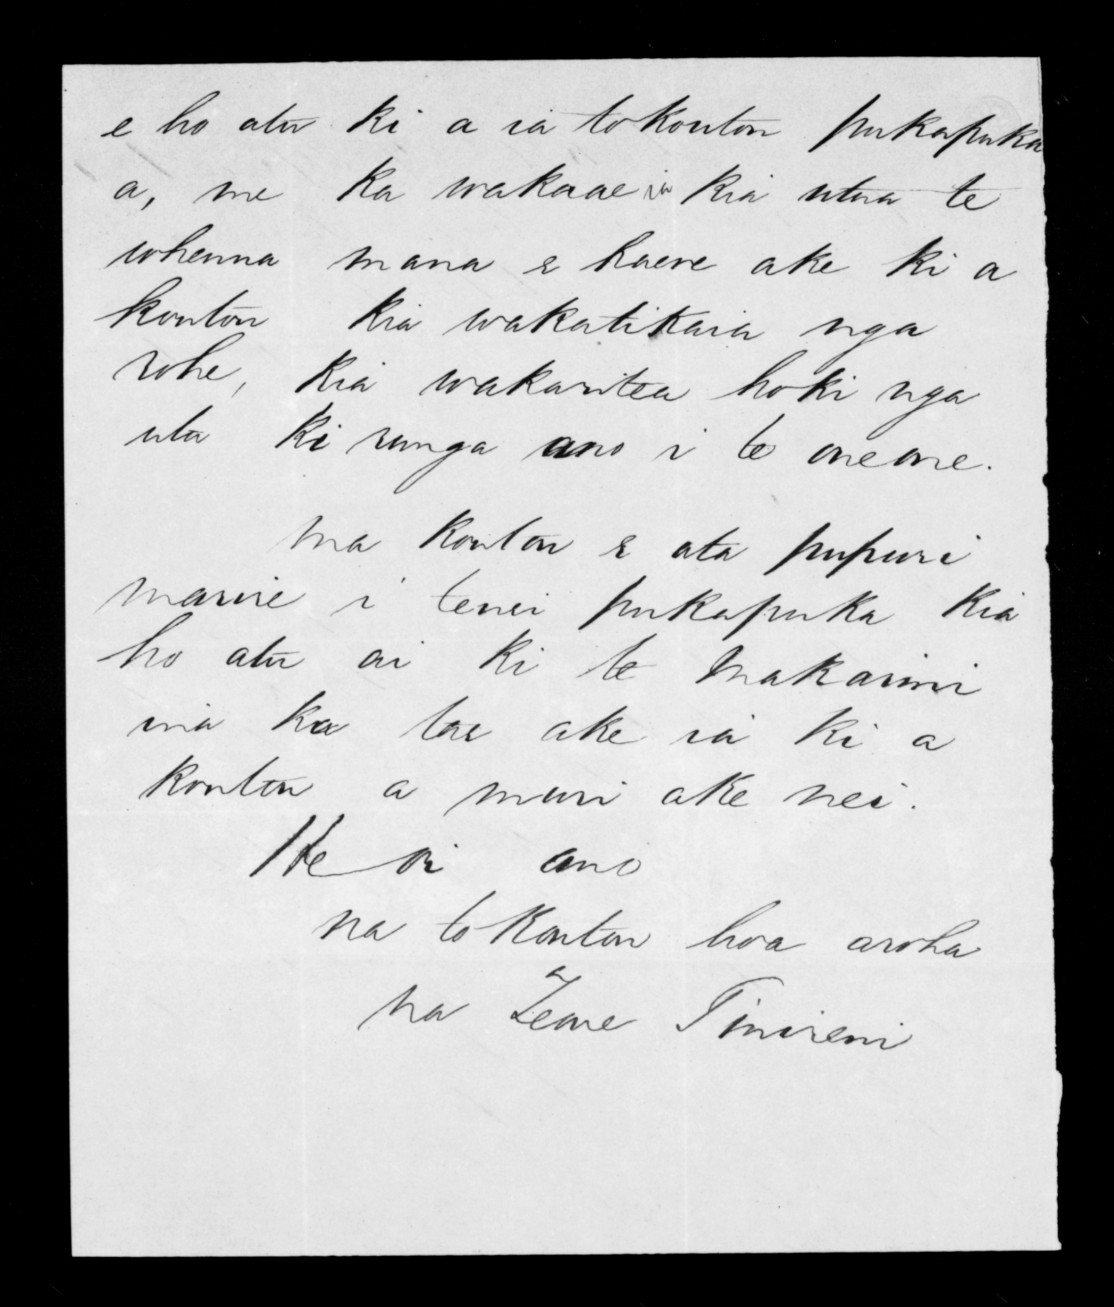 e ho atu ki a ia to koutou pukapuka
a, me ka wakaae ia kia utua te
whenua mana e haere ake ki a
koutou kia wakatikaia nga
rohe, kia wakaritea hoki nga
utu ki runga ano i te oneone.
ma koutou e ata pupuri
marire i tenei pukapuka kia
ho atu ai ki te Makarini
ina ka tae ake ia ki a
koutou a muri ake nei.
He oi ano
na to koutou hoa aroha
na